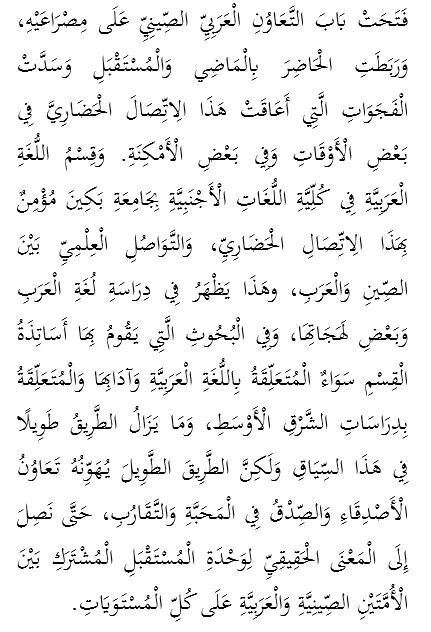 فَتَحَتْ بَابَ التَّعَاوُنِ الْعَرَبِيِّ الصِّينِيِّ عَلَى مِصْرَاعَيْهِ،
وَرَبَطَتِ الْحَاضِرَ بِالْمَاضِي وَالْمُسْتَقْبَلِ وَسَدَّتْ
الْفَجَوَاتِ الَّتِي أَعَاقَتْ هَذَا الِاتِّصَالَ الْحَضَارِيَّ فِي
بَعْضِ الْأَوْقَاتِ وَفِي بَعْضِ الْأَمْكِنَةِ. وَقِسْمُ اللُّغَةِ
الْعَرَبِيَّةِ فِي كُلِّيَّةِ اللُّغَاتِ الْأَجْنَبِيَّةِ بِجَامِعَةِ بَكِينَ مُؤْمِنٌ
بِهَذَا الِاتِّصَالِ الْحَضَارِيِّ، وَالتَّوَاصُلِ الْعِلْمِيِّ بَيْنَ
الصِّينِ وَالْعَرَبِ، وهَذَا يَظْهَرُ فِي دِرَاسَةِ لُغَةِ الْعَرَبِ
وَبَعْضِ لَهَجَاتِهَا، وَفِي الْبُحُوثِ الَّتِي يَقُومُ بِهَا أَسَاتِذَةُ
الْقِسْمِ سَوَاءٌ الْمُتَعَلِّقَةُ بِاللُّغَةِ الْعَرَبِيَّةِ وَآدَابِهَا وَالْمُتَعَلِّقَةُ
بِدِرَاسَاتِ الشَّرْقِ الْأَوْسَطِ، وَمَا يَزَالُ الطَّرِيقُ طَوِيلًا
فِي هَذَا السِّيَاقِ وَلَكِنَّ الطَّرِيقَ الطَّوِيلَ يُهَوِّنُهُ تَعَاوُنُ
الْأَصْدِقَاءِ وَالصِّدْقُ فِي الْمَحَبَّةِ وَالتَّقَارُبِ، حَتَّى نَصِلَ
إِلَى الْمَعْنَى الْحَقِيقِيِّ لِوَحْدَةِ الْمُسْتَقْبَلِ الْمُشْتَرَكِ بَيْنَ
الْأُمَّتَيْنِ الصِّينِيَّةِ وَالْعَرَبِيَّةِ عَلَى كُلِّ الْمُسْتَوَيَاتِ.